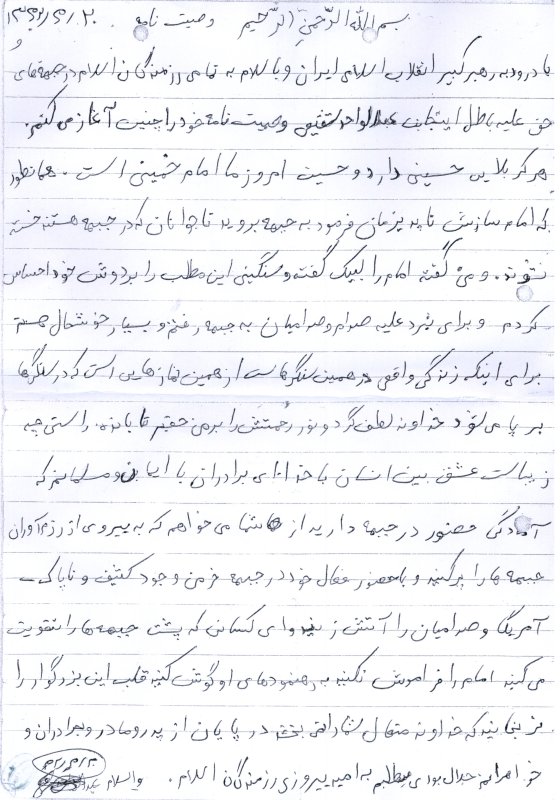 بسم الله الرّحمنِ الرّحیم وصیت نامه
با درود به رهبر کبیر انقلاب اسلامی ایران و با سلام به تمامی رزمندگان اسلام در جبهه‌های
حق علیه باطل اینجانب عبدالواحد وصیت نامه خود را چنین آغاز می کنم.
هر کربلایی حسینی دارد و حسین امروز ما امام خمینی است. همانطور
که امام سازش ناپذیرمان فرمود به جبهه بروید تا جوانان که در جبهه هستند خسته
نشوند. و من گفته امام را لبیک گفته و سنگینی این مطلب را بر دوش خود احساس
کردم و برای نبرد علیه صدام و صدامیان به جبهه رفتم و بسیار خوشحال هستم
برای اینکه زندگی واقعی در همین سنگرهاست از همین نمازهایی است که در سنگرها
بر پا می شود خداوند لطف کرد و نور رحمتش را بر من حقیر تاباند. راستی چه
زیباست عشق بین انسان با خدا ای برادران با ایمان و مسلمانم که
آمادگی حضور در جبهه دارید از شما می خواهم که به پیروی از رزم آوران
جبهه ها را پر کنید و با حضور فعال خود در جبهه خرمن وجود کثیف و ناپاک
آمریکا و صدامیان را آتش زنید و ای کسانی که پشت جبهه ها را تقویت
می کنید امام را فراموش نکنید به رهنمودهای او گوش کنید قلب این بزرگوار را
نرنجانید که خداوند متعال شما را در پایان از پدر و مادر و برادران و
خواهرانم حلال بودی می طلبم به امید پیروزی رزمندگان اسلام. والسلام